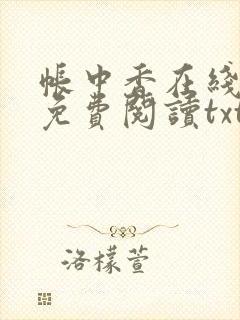 帳中香在綫
免費閱讀txt
洛檬萱